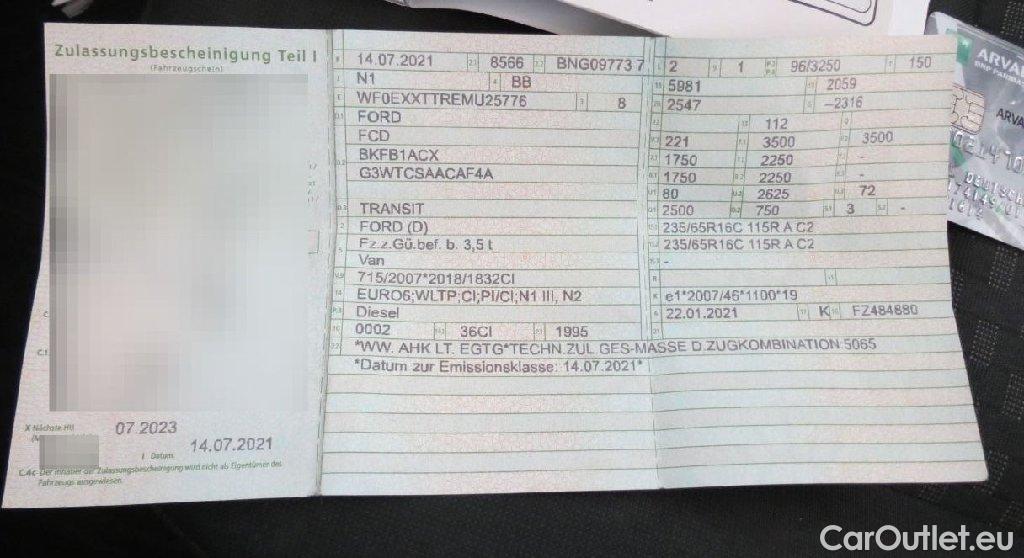 Zulassungsbescheinigung Teil I
(Fahrzeugschein)
X Nächste HU
07.2023
I Datum
14.07.2021
C.4c Der Inhaber der Zulassungsbescheinigung wird nicht als Eigentümer des
Fahrzeugs ausgewiesen.
14.07.2021 8566 BNG09773 7
N1 BB
WF0EXXTTREMU25776 8
FORD
FCD
BKFB1ACX
G3WTCSAACAF4A
TRANSIT
FORD (D)
Fz.z.Gü.bef. b. 3,5 t
Van
715/2007*2018/1832CI
EURO6;WLTP;CI;PI/CI;N1 III, N2
Diesel
0002 36CI 1995
*WW. AHK LT. EGTG*TECHN.ZUL GES-MASSE D.ZUGKOMBINATION:5065
*Datum zur Emissionsklasse: 14.07.2021*
2 1 96/3250 150
5981 2059
2547 –2316
112
221 3500 3500
1750 2250 -
1750 2250 -
80 2625 72
2500 750 3 -
235/65R16C 115R A C2
235/65R16C 115R A C2
-
e1*2007/46*1100*19
22.01.2021 K FZ484880
ARVAL
BNP PARIBAS
CarOutlet.eu